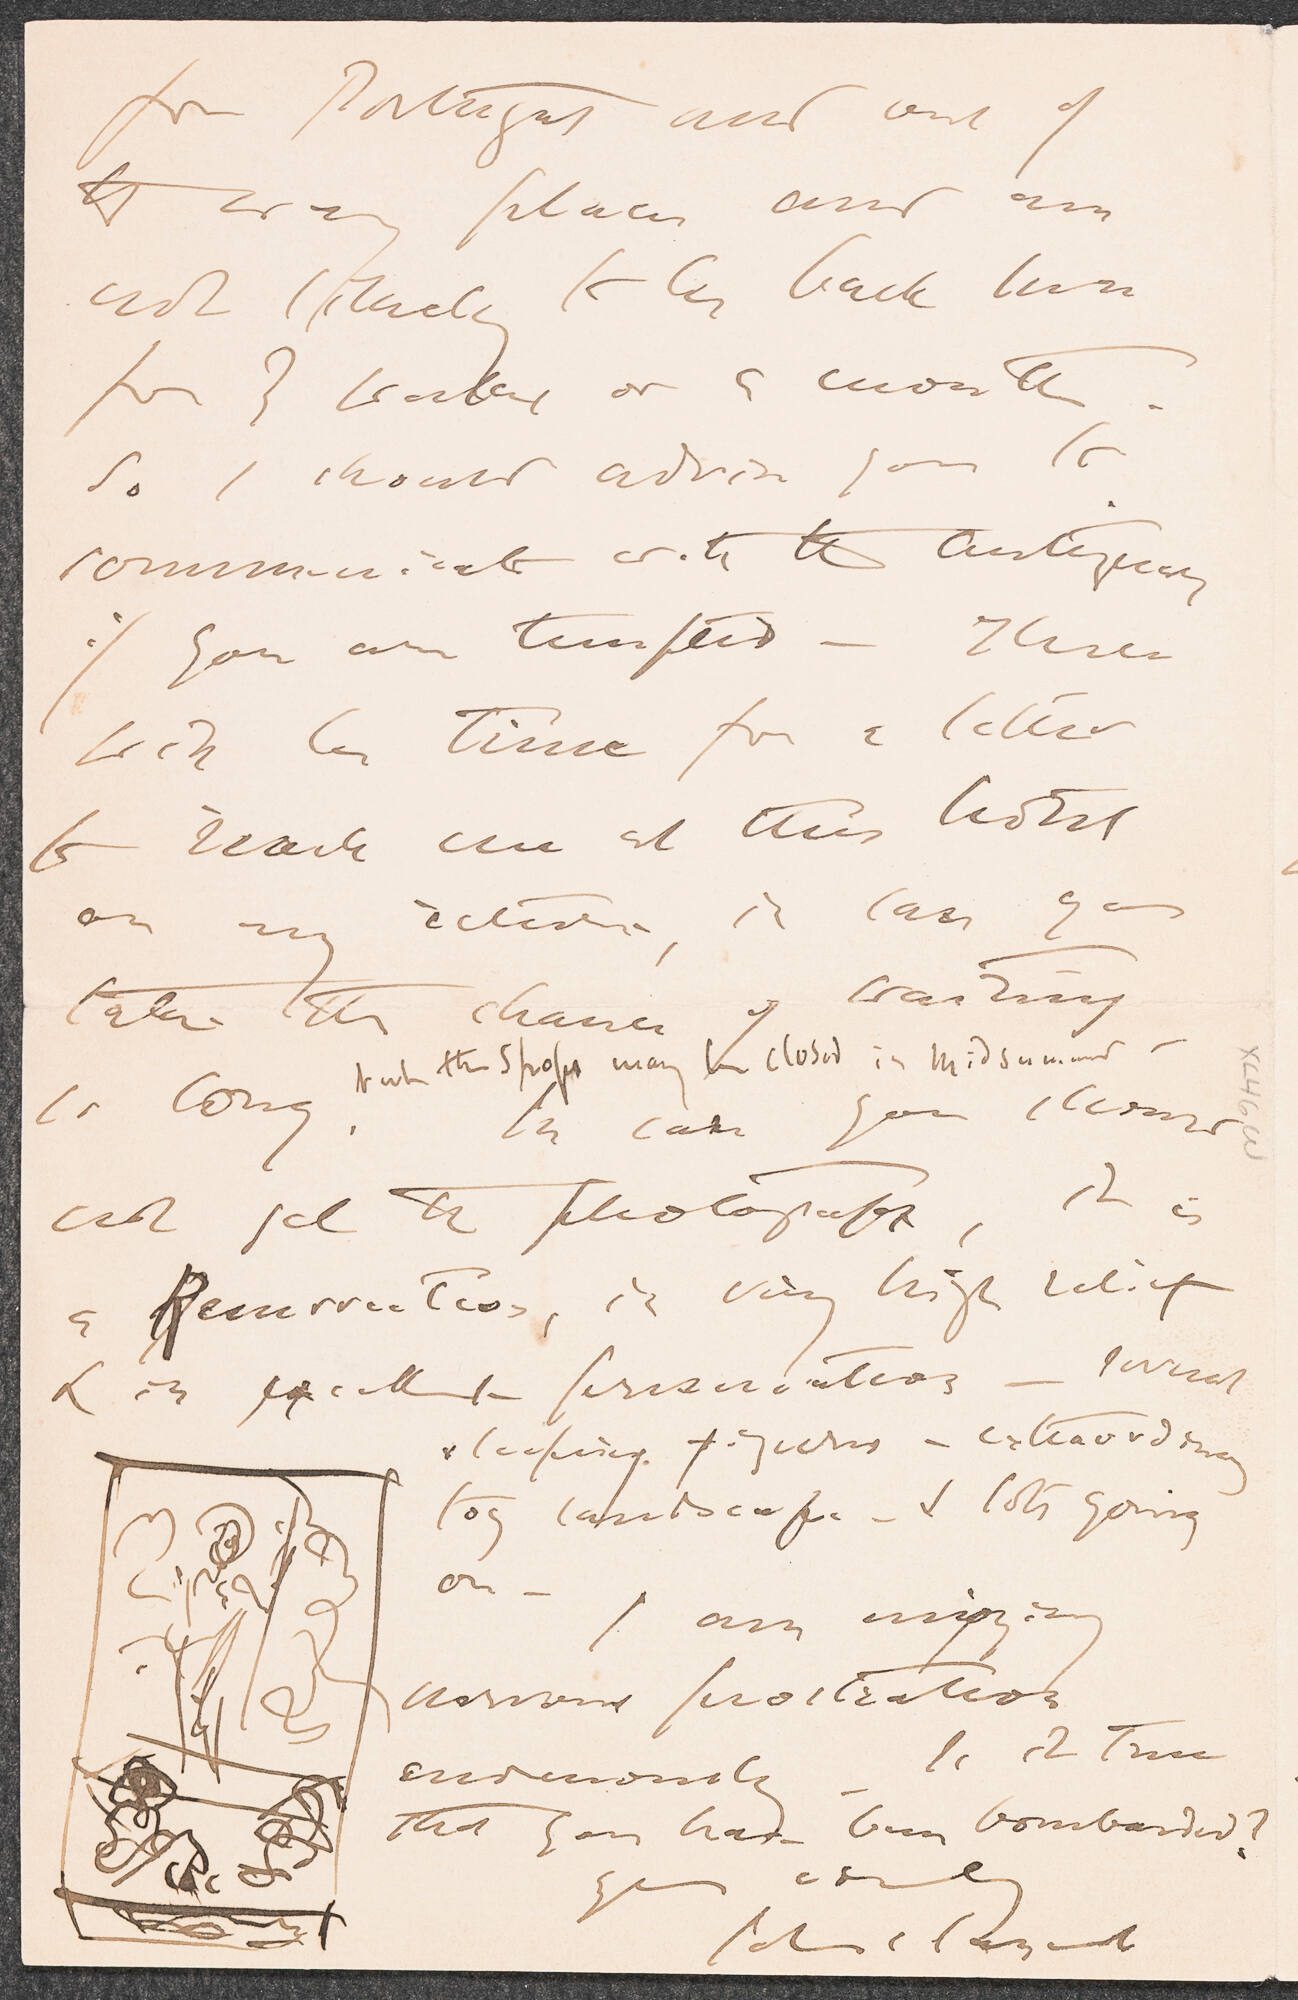 for Portugal and out of
the way places and am
not likely to be back here
for 3 weeks or a month.
So I should advise you to
communicate with the Antiquary
if you are tempted — There
will be time for a letter
to reach me at this hotel
on my return, in case you
take the chance of waiting
so long. but the shops may be closed in Midsummer —
In case you should
not get the photograph, it is
a Resurrection, in very high relief
& in excellent preservation — several
sleeping figures — extraordinary
toy landscape — & lots going
on —
I am enjoying
nervous prostration
enormously — Is it true
that you have been bombarded?
yours
John S Sargent
XL46W